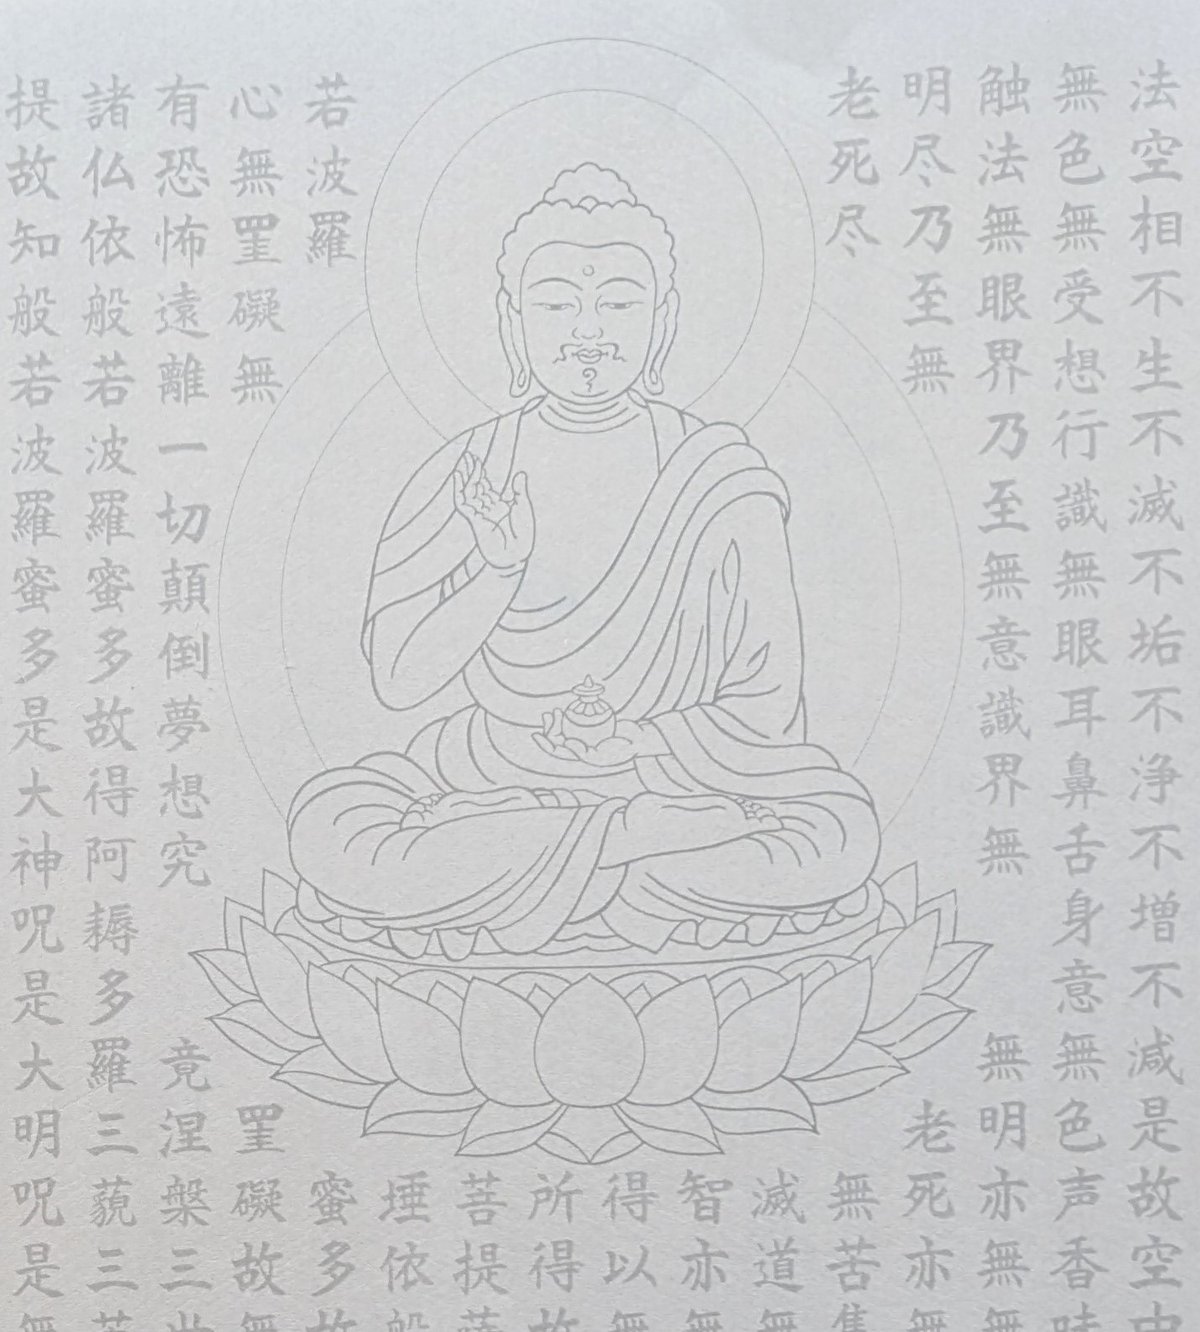 法空相不生不滅不垢不浄不増不減是故空中
無色無受想行識無眼耳鼻舌身意無色声香味
触法無眼界乃至無意識界無無明亦無無
明尽乃至無老死亦無
老死尽無苦集
滅道無
智亦無
得以無
所得故
菩提薩
埵依般
若波羅蜜多故
心無罣礙無罣礙故無
有恐怖遠離一切顛倒夢想究竟涅槃三世
諸仏依般若波羅蜜多故得阿耨多羅三藐三菩
提故知般若波羅蜜多是大神呪是大明呪是無